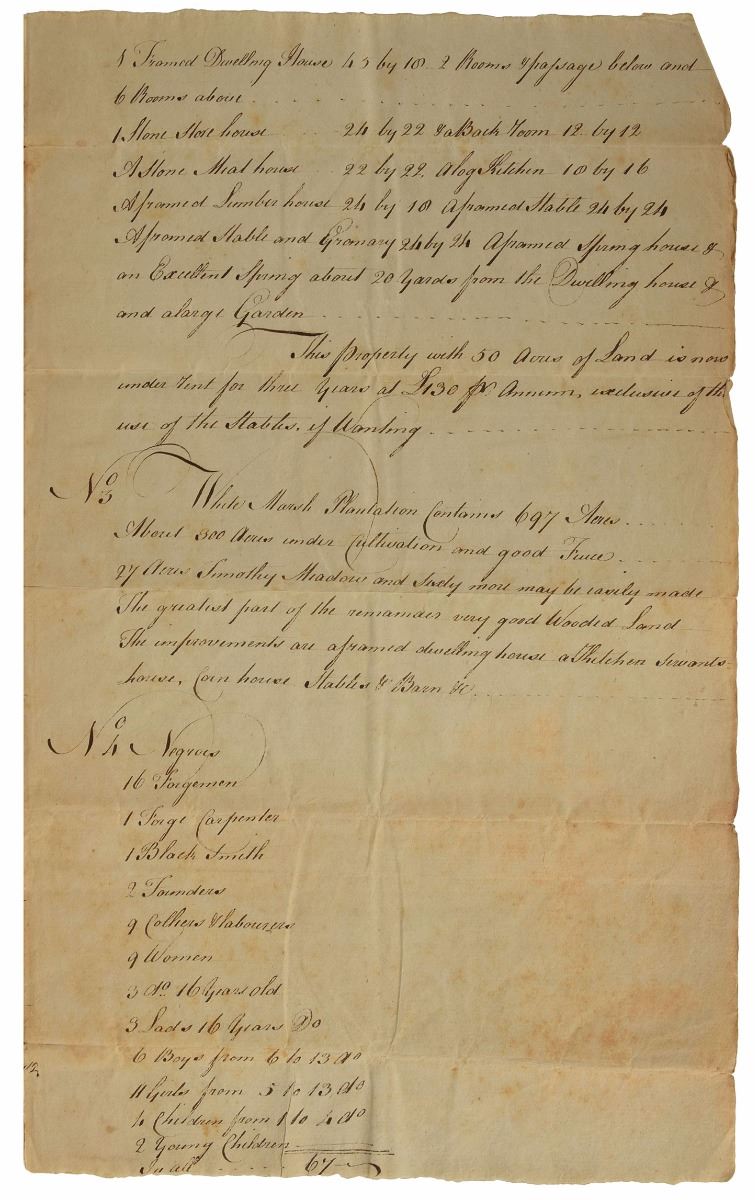 1 Framed Dwelling House 43 by 18 2 Rooms & passage below and
6 Rooms above
1 Stone Store house 24 by 22 & a Back Room 12 by 12
A Stone Meat house 22 by 22. A log Kitchen 18 by 16
A framed Lumber house 24 by 18 A framed Stable 24 by 24
A framed Stable and Granary 24 by 24 A framed Spring house &
an Excellent Spring about 20 Yards from the Dwelling house &
and a large Garden
This property with 50 Acres of Land is now
under rent for three Years at £130 pr Annum, exclusive of the
use of the Stables, if Wanting
No 3 White Marsh Plantation Contains 697 Acres
About 300 Acres under Cultivation and good Fence
27 Acres Timothy Meadow and Sixty more may be easily made
The greatest part of the remainder very good Wooded Land
The improvements are a framed dwelling house a Kitchen Servants
house, Corn house Stables & Barn &c
No 4 Negroes
16 Forgemen
1 Forge Carpenter
1 Black Smith
2 Founders
9 Colliers & labourers
9 Women
3 do 16 Years old
3 Lads 16 Years Do
6 Boys from 6 to 13 do
11 Girls from 5 to 13 do
4 Children from 1 to 4 do
2 Young Children
In all 67